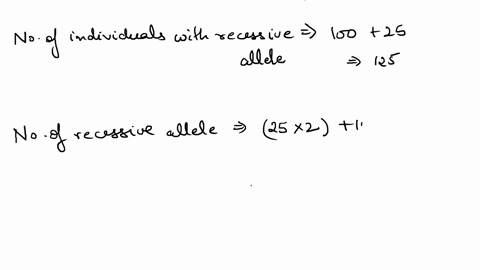 No. of individuals with recessive ⇒ 100 + 25
allele ⇒ 125
No. of recessive allele ⇒ (25 × 2) + 1